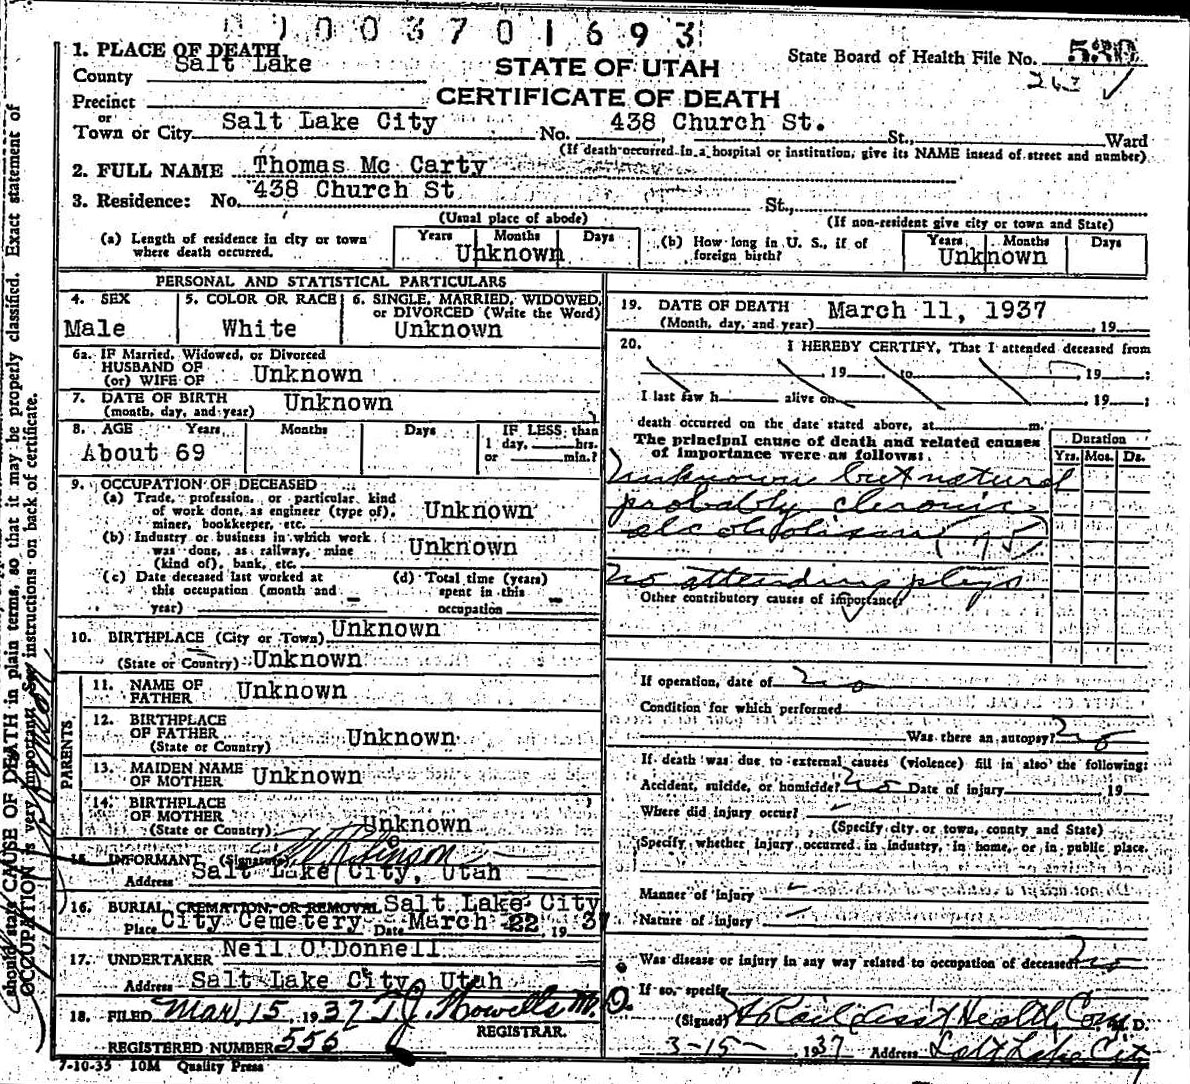 01003701693
1. PLACE OF DEATH
STATE OF UTAH
State Board of Health File No. 530
County Salt Lake
263 ✓
CERTIFICATE OF DEATH
Precinct
or
Town or City Salt Lake City No. 438 Church St. St., Ward
(If death occurred in a hospital or institution, give its NAME instead of street and number)
2. FULL NAME Thomas Mc Carty
3. Residence: No. 438 Church St St.,
(Usual place of abode) (If non-resident give city or town and State)
(a) Length of residence in city or town where death occurred. Years Months Days Unknown
(b) How long in U. S., if of foreign birth? Years Months Days Unknown
PERSONAL AND STATISTICAL PARTICULARS
4. SEX 5. COLOR OR RACE 6. SINGLE, MARRIED, WIDOWED, or DIVORCED (Write the Word)
Male White Unknown
6a. IF Married, Widowed, or Divorced
HUSBAND OF
(or) WIFE OF Unknown
7. DATE OF BIRTH
(month, day, and year) Unknown
8. AGE Years Months Days IF LESS than
1 day, hrs.
or min.?
About 69
9. OCCUPATION OF DECEASED
(a) Trade, profession, or particular kind
of work done, as engineer (type of),
miner, bookkeeper, etc. Unknown
(b) Industry or business in which work
was done, as railway, mine
(kind of), bank, etc. Unknown
(c) Date deceased last worked at
this occupation (month and
year) –
(d) Total time (years)
spent in this
occupation –
10. BIRTHPLACE (City or Town) Unknown
(State or Country) Unknown
PARENTS
11. NAME OF
FATHER Unknown
12. BIRTHPLACE
OF FATHER
(State or Country) Unknown
13. MAIDEN NAME
OF MOTHER Unknown
14. BIRTHPLACE
OF MOTHER
(State or Country) Unknown
15. INFORMANT (Signature)
Address Salt Lake City, Utah
16. BURIAL CREMATION OR REMOVAL Salt Lake City
Place City Cemetery Date March 22, 1937
17. UNDERTAKER Neil O'Donnell
Address Salt Lake City, Utah
18. FILED Mar. 15, 1937 T J. Howells M. D.
REGISTRAR.
REGISTERED NUMBER 556
7-10-35 10M Quality Press
19. DATE OF DEATH March 11, 1937
(Month, day, and year) , 19
20. I HEREBY CERTIFY, That I attended deceased from
, 19 , to , 19 ;
I last saw h alive on , 19 ;
death occurred on the date stated above, at m.
The principal cause of death and related causes
of importance were as follows:
Duration
Yrs. Mos. Ds.
Unknown but natural
probably chronic
alcoholism (75)
No attending phys
Other contributory causes of importance:
If operation, date of No
Condition for which performed
Was there an autopsy? No
If death was due to external causes (violence) fill in also the following:
Accident, suicide, or homicide? No Date of injury , 19
Where did injury occur?
(Specify city or town, county and State)
Specify whether injury occurred in industry, in home, or in public place.
Manner of injury
Nature of injury
Was disease or injury in any way related to occupation of deceased? No
If so, specify
(Signed) Asst Health Com M. D.
3-15- , 1937 Address Salt Lake City
should state CAUSE OF DEATH in plain terms, so that it may be properly classified. Exact statement of
OCCUPATION is very important. See instructions on back of certificate.